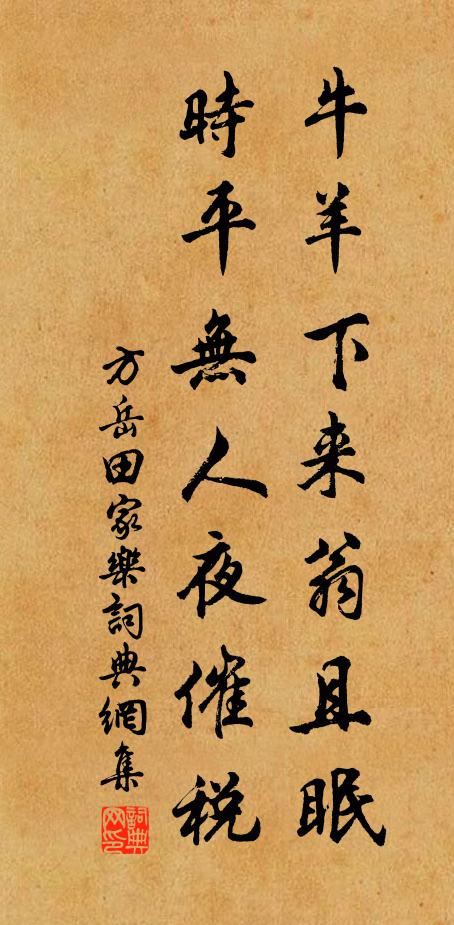 牛羊下来翁且眠
時平無人夜催税
方岳田家樂詞典網集
詞典網印